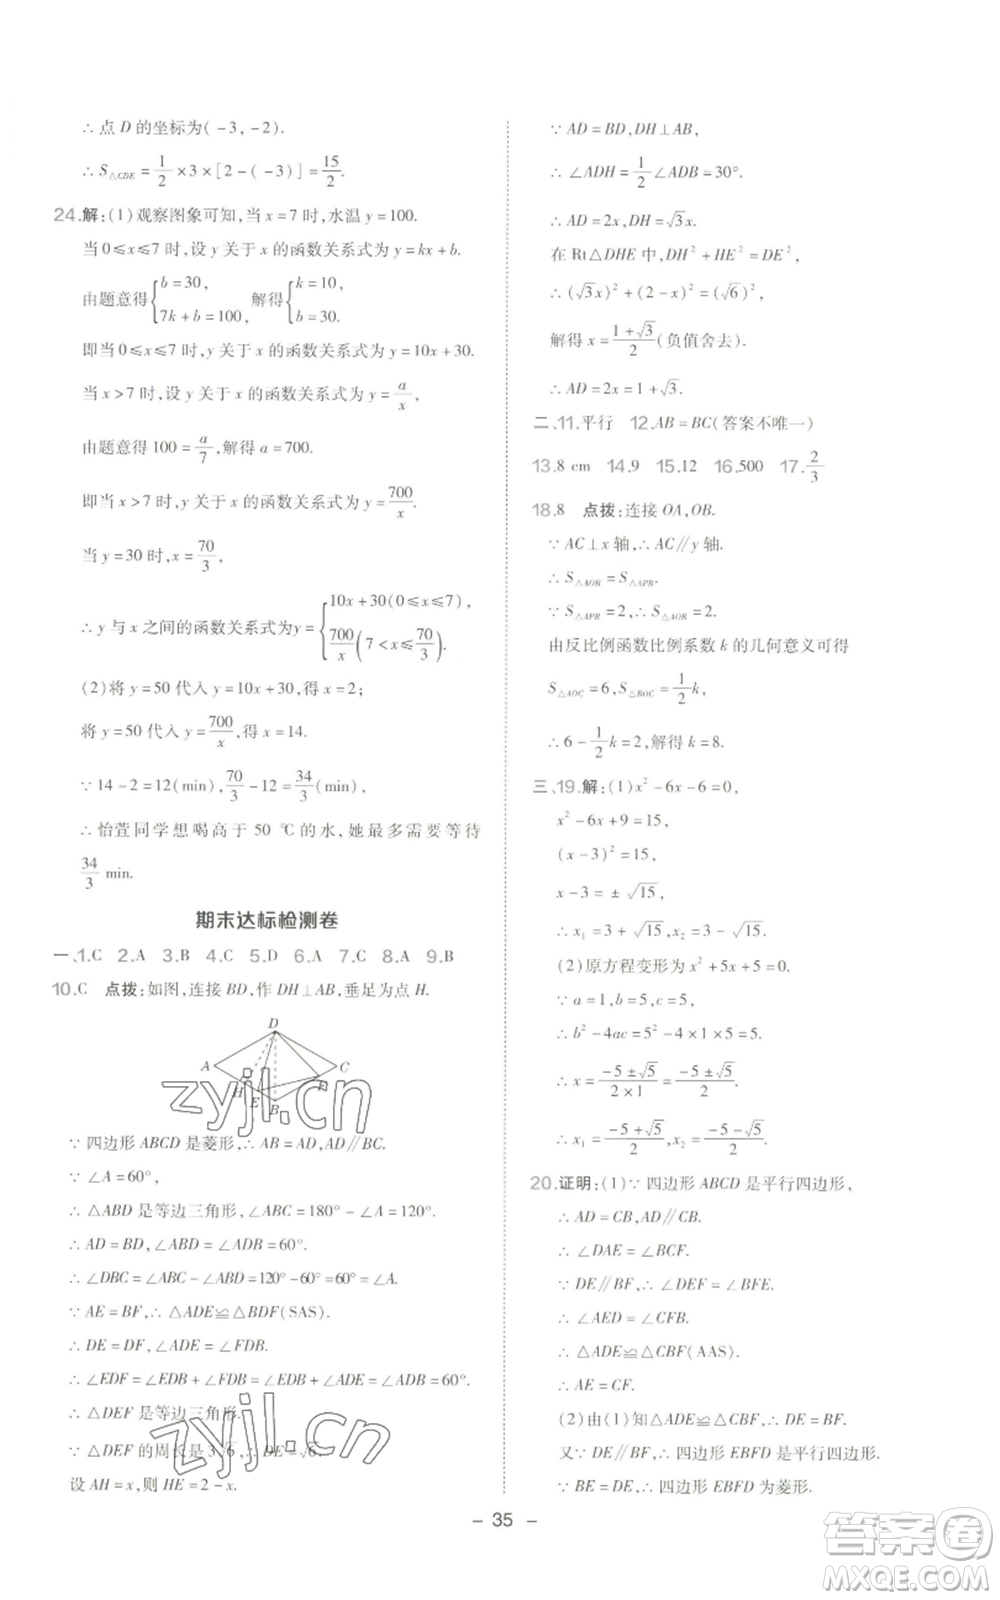 ∴ 点 D 的坐标为(-3,-2).
∴ S△CDE = 1/2 ×3×[2-(-3)] = 15/2.
24.解:(1)观察图象可知,当 x=7 时,水温 y=100.
当 0≤x≤7 时,设 y 关于 x 的函数关系式为 y=kx+b.
由题意得{b=30, 7k+b=100, 解得{k=10, b=30.
即当 0≤x≤7 时,y 关于 x 的函数关系式为 y=10x+30.
当 x>7 时,设 y 关于 x 的函数关系式为 y=a/x,
由题意得 100=a/7,解得 a=700.
即当 x>7 时,y 关于 x 的函数关系式为 y=700/x.
当 y=30 时,x=70/3,
∴ y 与 x 之间的函数关系式为y={10x+30(0≤x≤7), 700/x(7<x≤70/3).
(2)将 y=50 代入 y=10x+30,得 x=2;
将 y=50 代入 y=700/x,得 x=14.
∵ 14-2=12(min),70/3-12=34/3(min),
∴ 怡萱同学想喝高于 50 ℃的水,她最多需要等待
34/3 min.
期末达标检测卷
一、1.C 2.A 3.B 4.C 5.D 6.A 7.C 8.A 9.B
10.C 点拨:如图,连接 BD,作 DH⊥AB,垂足为点 H.
D
A
C
H
E
B
F
zyjl.cn
∵ 四边形 ABCD 是菱形,∴ AB=AD,AD∥BC.
∵ ∠A=60°,
∴ △ABD 是等边三角形,∠ABC=180°-∠A=120°.
∴ AD=BD,∠ABD=∠ADB=60°.
∴ ∠DBC=∠ABC-∠ABD=120°-60°=60°=∠A.
∵ AE=BF,∴ △ADE≌△BDF(SAS).
∴ DE=DF,∠ADE=∠FDB.
∴ ∠EDF=∠EDB+∠FDB=∠EDB+∠ADE=∠ADB=60°.
∴ △DEF 是等边三角形.
∵ △DEF 的周长是 3√6,∴ DE=√6.
zyjl.cn
设 AH=x,则 HE=2-x.
∵ AD=BD,DH⊥AB,
∴ ∠ADH=1/2∠ADB=30°.
∴ AD=2x,DH=√3x.
在 Rt△DHE 中,DH²+HE²=DE²,
∴ (√3x)²+(2-x)²=(√6)²,
解得 x=(1+√3)/2(负值舍去).
∴ AD=2x=1+√3.
二、11.平行 12.AB=BC(答案不唯一)
13.8 cm 14.9 15.12 16.500 17.2/3
18.8 点拨:连接 OA,OB.
∵ AC⊥x 轴,∴ AC∥y 轴.
∴ S△AOB=S△APB.
∵ S△APB=2,∴ S△AOB=2.
由反比例函数比例系数 k 的几何意义可得
S△AOC=6,S△BOC=1/2k,
∴ 6-1/2k=2,解得 k=8.
三、19.解:(1)x²-6x-6=0,
x²-6x+9=15,
(x-3)²=15,
x-3=±√15,
∴ x₁=3+√15,x₂=3-√15.
(2)原方程变形为 x²+5x+5=0.
∵ a=1,b=5,c=5,
∴ b²-4ac=5²-4×1×5=5.
∴ x=(-5±√5)/(2×1)=(-5±√5)/2.
∴ x₁=(-5+√5)/2,x₂=(-5-√5)/2.
20.证明:(1)∵ 四边形 ABCD 是平行四边形,
∴ AD=CB,AD∥CB.
∴ ∠DAE=∠BCF.
∵ DE∥BF,∴ ∠DEF=∠BFE.
∴ ∠AED=∠CFB.
∴ △ADE≌△CBF(AAS).
∴ AE=CF.
(2)由(1)知△ADE≌△CBF,∴ DE=BF.
又∵ DE∥BF,∴ 四边形 EBFD 是平行四边形.
∵ BE=DE,∴ 四边形 EBFD 为菱形.
- 35 -
答案圈
MXQE.COM